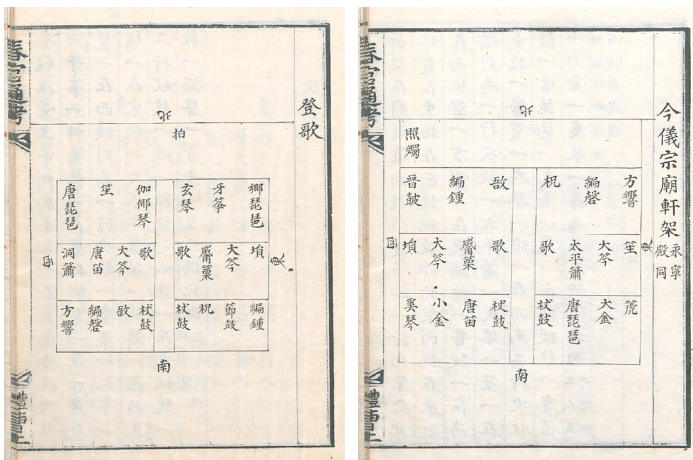 今儀宗廟軒架 永寧殿同
北
照燭
方響 編磬 柷 敔 編鍾 晉鼓
東
笙 大笒 太平簫 歌 歌 觱篥 大笒 塤
西
篪 大金 唐琵琶 杖鼓 杖鼓 唐笛 小金 奚琴
南
春官通考
禮曹上
登歌
北
拍
鄕琵琶 牙箏 玄琴 伽倻琴 笙 唐琵琶
東
塤 大笒 觱篥 歌 歌 大笒 唐笛 洞簫
西
編鍾 節鼓 柷 杖鼓 杖鼓 敔 編磬 方響
南
春官通考
禮曹上